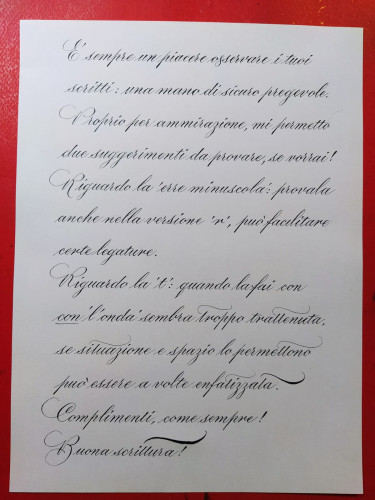 E' sempre un piacere osservare i tuoi
scritti: una mano di sicuro pregevole.
Proprio per ammirazione, mi permetto
due suggerimenti da provare, se vorrai!
Riguardo la 'erre minuscola': provala
anche nella versione 'r', può facilitare
certe legature.
Riguardo la 't': quando la fai con
con 'l'onda' sembra troppo trattenuta,
se situazione e spazio lo permettono
può essere a volte enfatizzata.
Complimenti, come sempre!
Buona scrittura!